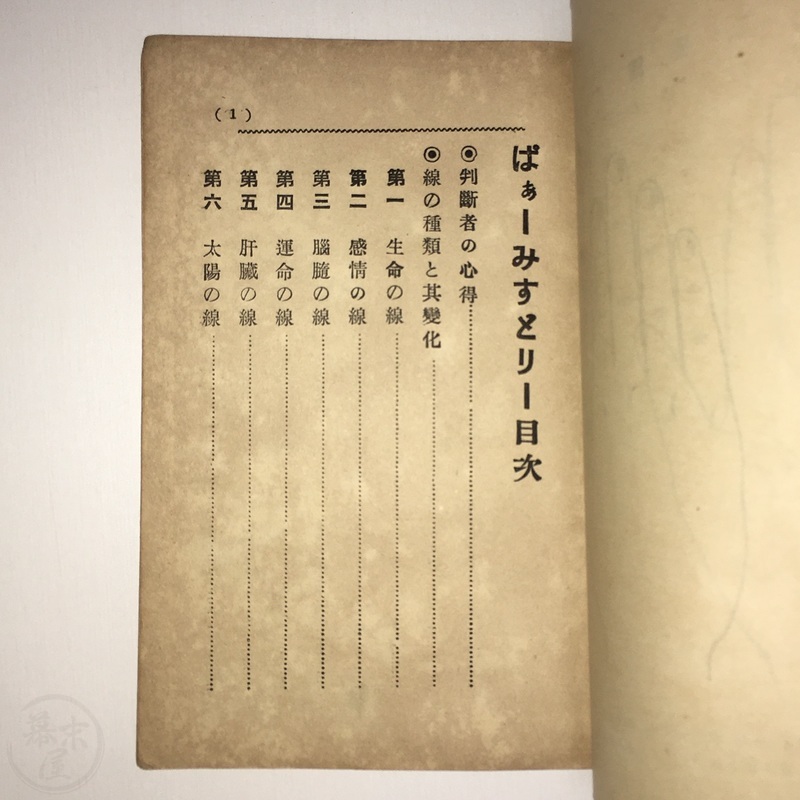 ぱぁーみすとリー目次
◉判斷者の心得
◉線の種類と其變化
第一 生命の線
第二 感情の線
第三 腦髄の線
第四 運命の線
第五 肝臓の線
第六 太陽の線
(1)
幕末屋